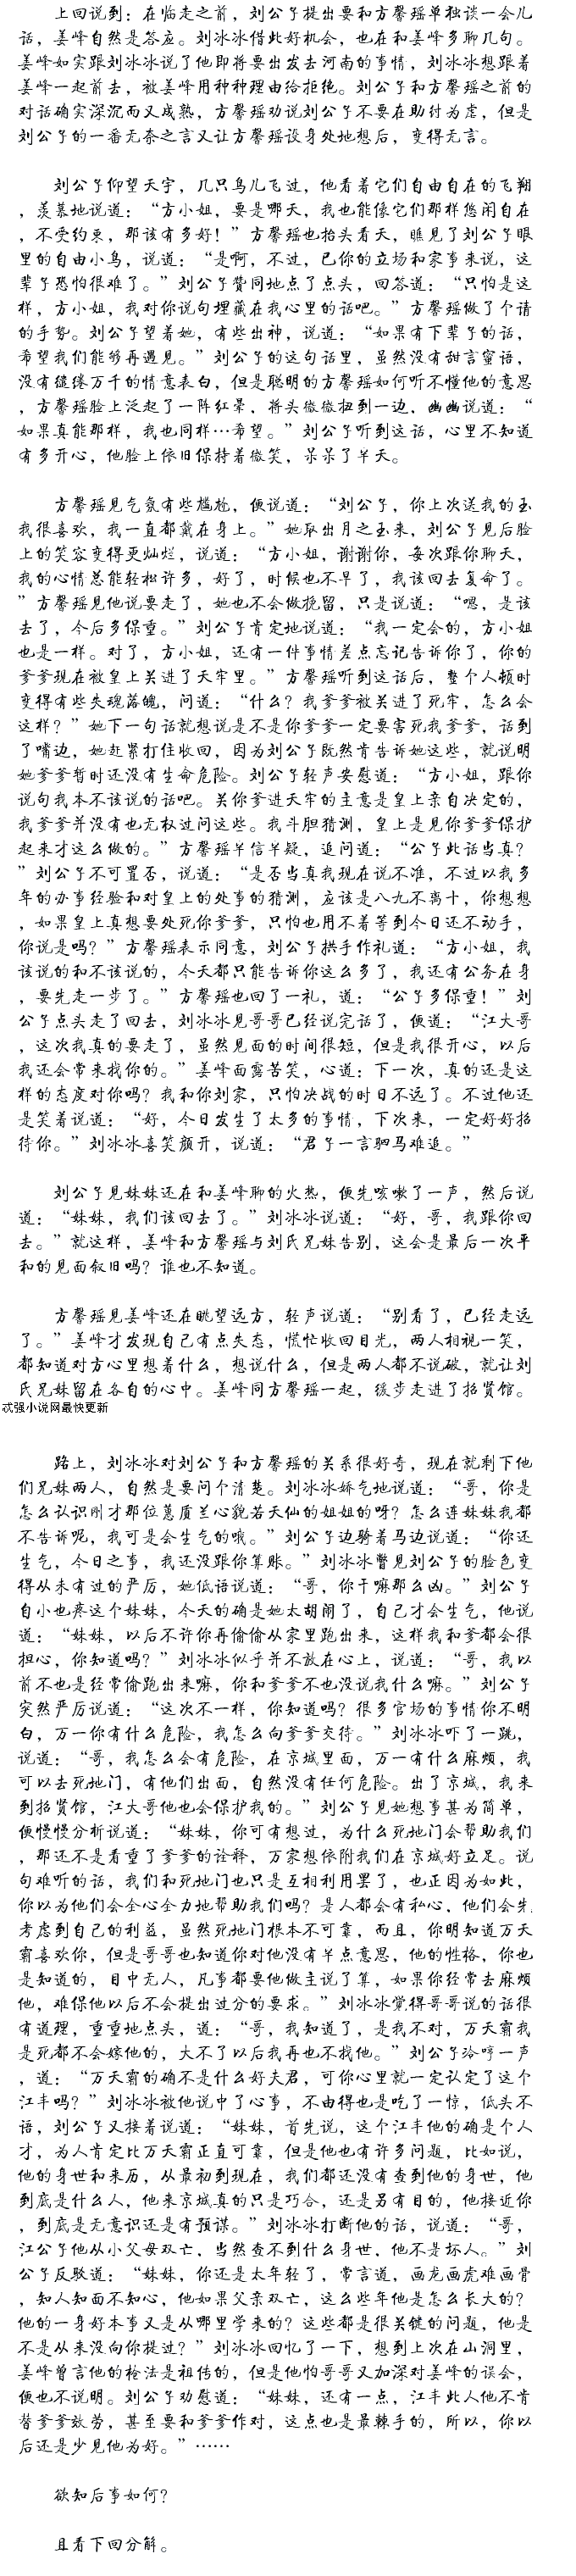 上回说到：在临走之前，刘公子提出要和方馨瑶单独谈一会儿
话，姜峰自然是答应。刘冰冰借此好机会，也在和姜峰多聊几句。
姜峰如实跟刘冰冰说了他即将要出发去河南的事情，刘冰冰想跟着
姜峰一起前去，被姜峰用种种理由给拒绝。刘公子和方馨瑶之前的
对话确实深沉而又成熟，方馨瑶劝说刘公子不要在助纣为虐，但是
刘公子的一番无奈之言又让方馨瑶设身处地想后，变得无言。
刘公子仰望天宇，几只鸟儿飞过，他看着它们自由自在的飞翔
，羡慕地说道：“方小姐，要是哪天，我也能像它们那样悠闲自在
，不受约束，那该有多好！”方馨瑶也抬头看天，瞧见了刘公子眼
里的自由小鸟，说道：“是啊，不过，已你的立场和家事来说，这
辈子恐怕很难了。”刘公子赞同地点了点头，回答道：“只怕是这
样，方小姐，我对你说句埋藏在我心里的话吧。”方馨瑶做了个请
的手势。刘公子望着她，有些出神，说道：“如果有下辈子的话，
希望我们能够再遇见。”刘公子的这句话里，虽然没有甜言蜜语，
没有缱绻万千的情意表白，但是聪明的方馨瑶如何听不懂他的意思
，方馨瑶脸上泛起了一阵红晕，将头微微扭到一边，幽幽说道：“
如果真能那样，我也同样…希望。”刘公子听到这话，心里不知道
有多开心，他脸上依旧保持着微笑，呆呆了半天。
方馨瑶见气氛有些尴尬，便说道：“刘公子，你上次送我的玉
我很喜欢，我一直都戴在身上。”她取出月之玉来，刘公子见后脸
上的笑容变得更灿烂，说道：“方小姐，谢谢你，每次跟你聊天，
我的心情总能轻松许多，好了，时候也不早了，我该回去复命了。
”方馨瑶见他说要走了，她也不会做挽留，只是说道：“嗯，是该
去了，今后多保重。”刘公子肯定地说道：“我一定会的，方小姐
也是一样。对了，方小姐，还有一件事情差点忘记告诉你了，你的
爹爹现在被皇上关进了天牢里。”方馨瑶听到这话后，整个人顿时
变得有些失魂落魄，问道：“什么？我爹爹被关进了死牢，怎么会
这样？”她下一句话就想说是不是你爹爹一定要害死我爹爹，话到
了嘴边，她赶紧打住收回，因为刘公子既然肯告诉她这些，就说明
她爹爹暂时还没有生命危险。刘公子轻声安慰道：“方小姐，跟你
说句我本不该说的话吧。关你爹进天牢的主意是皇上亲自决定的，
我爹爹并没有也无权过问这些。我斗胆猜测，皇上是见你爹爹保护
起来才这么做的。”方馨瑶半信半疑，追问道：“公子此话当真？
”刘公子不可置否，说道：“是否当真我现在说不准，不过以我多
年的办事经验和对皇上的处事的猜测，应该是八九不离十，你想想
，如果皇上真想要处死你爹爹，只怕也用不着等到今日还不动手，
你说是吗？”方馨瑶表示同意，刘公子拱手作礼道：“方小姐，我
该说的和不该说的，今天都只能告诉你这么多了，我还有公务在身
，要先走一步了。”方馨瑶也回了一礼，道：“公子多保重！”刘
公子点头走了回去，刘冰冰见哥哥已经说完话了，便道：“江大哥
，这次我真的要走了，虽然见面的时间很短，但是我很开心，以后
我还会常来找你的。”姜峰面露苦笑，心道：下一次，真的还是这
样的态度对你吗？我和你刘家，只怕决战的时日不远了。不过他还
是笑着说道：“好，今日发生了太多的事情，下次来，一定好好招
待你。”刘冰冰喜笑颜开，说道：“君子一言驷马难追。”
刘公子见妹妹还在和姜峰聊的火热，便先咳嗽了一声，然后说
道：“妹妹，我们该回去了。”刘冰冰说道：“好，哥，我跟你回
去。”就这样，姜峰和方馨瑶与刘氏兄妹告别，这会是最后一次平
和的见面叙旧吗？谁也不知道。
方馨瑶见姜峰还在眺望远方，轻声说道：“别看了，已经走远
了。”姜峰才发现自己有点失态，慌忙收回目光，两人相视一笑，
都知道对方心里想着什么，想说什么，但是两人都不说破，就让刘
氏兄妹留在各自的心中。姜峰同方馨瑶一起，缓步走进了招贤馆。
忒强小说网最快更新
路上，刘冰冰对刘公子和方馨瑶的关系很好奇，现在就剩下他
们兄妹两人，自然是要问个清楚。刘冰冰娇气地说道：“哥，你是
怎么认识刚才那位蕙质兰心貌若天仙的姐姐的呀？怎么连妹妹我都
不告诉呢，我可是会生气的哦。”刘公子边骑着马边说道：“你还
生气，今日之事，我还没跟你算账。”刘冰冰瞥见刘公子的脸色变
得从未有过的严厉，她低语说道：“哥，你干嘛那么凶。”刘公子
自小也疼这个妹妹，今天的确是她太胡闹了，自己才会生气，他说
道：“妹妹，以后不许你再偷偷从家里跑出来，这样我和爹都会很
担心，你知道吗？”刘冰冰似乎并不放在心上，说道：“哥，我以
前不也是经常偷跑出来嘛，你和爹爹不也没说我什么嘛。”刘公子
突然严厉说道：“这次不一样，你知道吗？很多官场的事情你不明
白，万一你有什么危险，我怎么向爹爹交待。”刘冰冰吓了一跳，
说道：“哥，我怎么会有危险，在京城里面，万一有什么麻烦，我
可以去死地门，有他们出面，自然没有任何危险。出了京城，我来
到招贤馆，江大哥他也会保护我的。”刘公子见她想事甚为简单，
便慢慢分析说道：“妹妹，你可有想过，为什么死地门会帮助我们
，那还不是看重了爹爹的诠释，万家想依附我们在京城好立足。说
句难听的话，我们和死地门也只是互相利用罢了，也正因为如此，
你以为他们会全心全力地帮助我们吗？是人都会有私心，他们会先
考虑到自己的利益，虽然死地门根本不可靠，而且，你明知道万天
霸喜欢你，但是哥哥也知道你对他没有半点意思，他的性格，你也
是知道的，目中无人，凡事都要他做主说了算，如果你经常去麻烦
他，难保他以后不会提出过分的要求。”刘冰冰觉得哥哥说的话很
有道理，重重地点头，道：“哥，我知道了，是我不对，万天霸我
是死都不会嫁他的，大不了以后我再也不找他。”刘公子冷哼一声
，道：“万天霸的确不是什么好夫君，可你心里就一定认定了这个
江丰吗？”刘冰冰被他说中了心事，不由得也是吃了一惊，低头不
语，刘公子又接着说道：“妹妹，首先说，这个江丰他的确是个人
才，为人肯定比万天霸正直可靠，但是他也有许多问题，比如说，
他的身世和来历，从最初到现在，我们都还没有查到他的身世，他
到底是什么人，他来京城真的只是巧合，还是另有目的，他接近你
，到底是无意识还是有预谋。”刘冰冰打断他的话，说道：“哥，
江公子他从小父母双亡，当然查不到什么身世，他不是坏人。”刘
公子反驳道：“妹妹，你还是太年轻了，常言道，画龙画虎难画骨
，知人知面不知心，他如果父亲双亡，这么些年他是怎么长大的？
他的一身好本事又是从哪里学来的？这些都是很关键的问题，他是
不是从来没向你提过？”刘冰冰回忆了一下，想到上次在山洞里，
姜峰曾言他的枪法是祖传的，但是他怕哥哥又加深对姜峰的误会，
便也不说明。刘公子劝慰道：“妹妹，还有一点，江丰此人他不肯
替爹爹效劳，甚至要和爹爹作对，这点也是最棘手的，所以，你以
后还是少见他为好。”……
欲知后事如何？
且看下回分解。